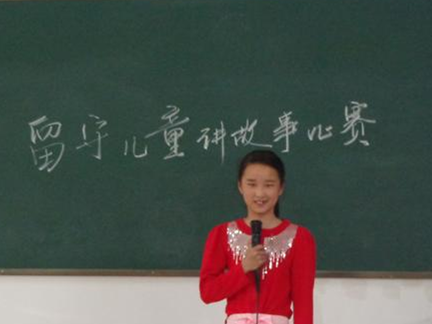 留守儿童讲故事比赛